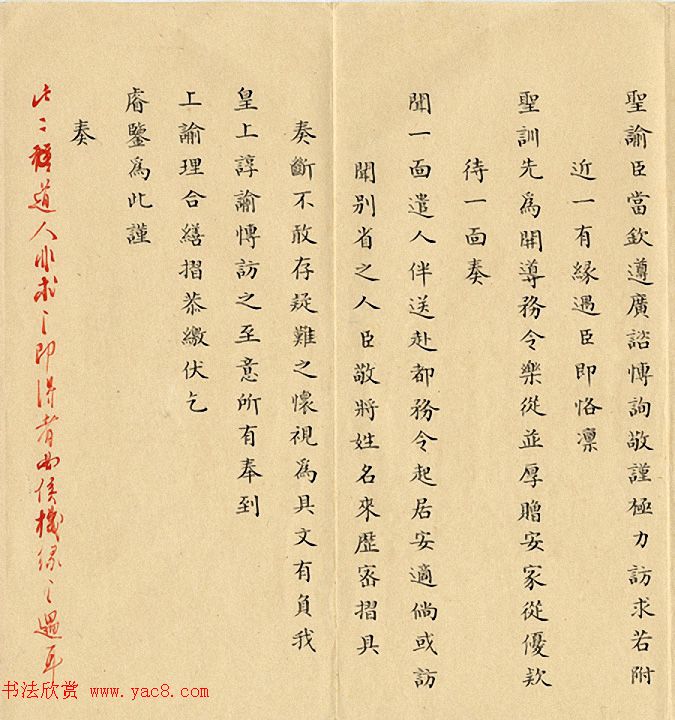 聖諭臣當欽遵廣諮慱詢敬謹極力訪求若附
近一有緣遇臣即恪凛
聖訓先為開導務令樂從並厚贈安家從優欵
待一面奏
聞一面遣人伴送赴都務令起居安適倘或訪
聞别省之人臣敬將姓名來歷密摺具
奏斷不敢存疑難之懷視為具文有負我
皇上諄諭慱訪之至意所有奉到
上諭理合繕摺恭繳伏乞
睿鑒為此謹
奏
此二種道人非求之即得者由俟機緣之遇耳
书法欣赏 www.yac8.com